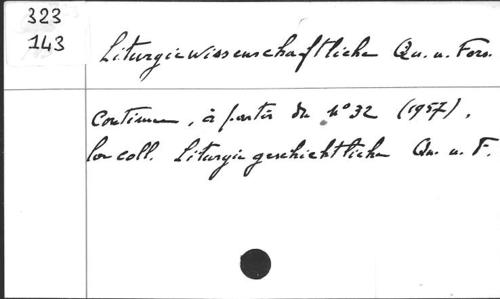 323
143
Liturgiewissenschaftliche Qu. u. Fors.
Continue, à partir du n° 32 (1957),
la coll. Liturgiegeschichtliche Qu. u. F.